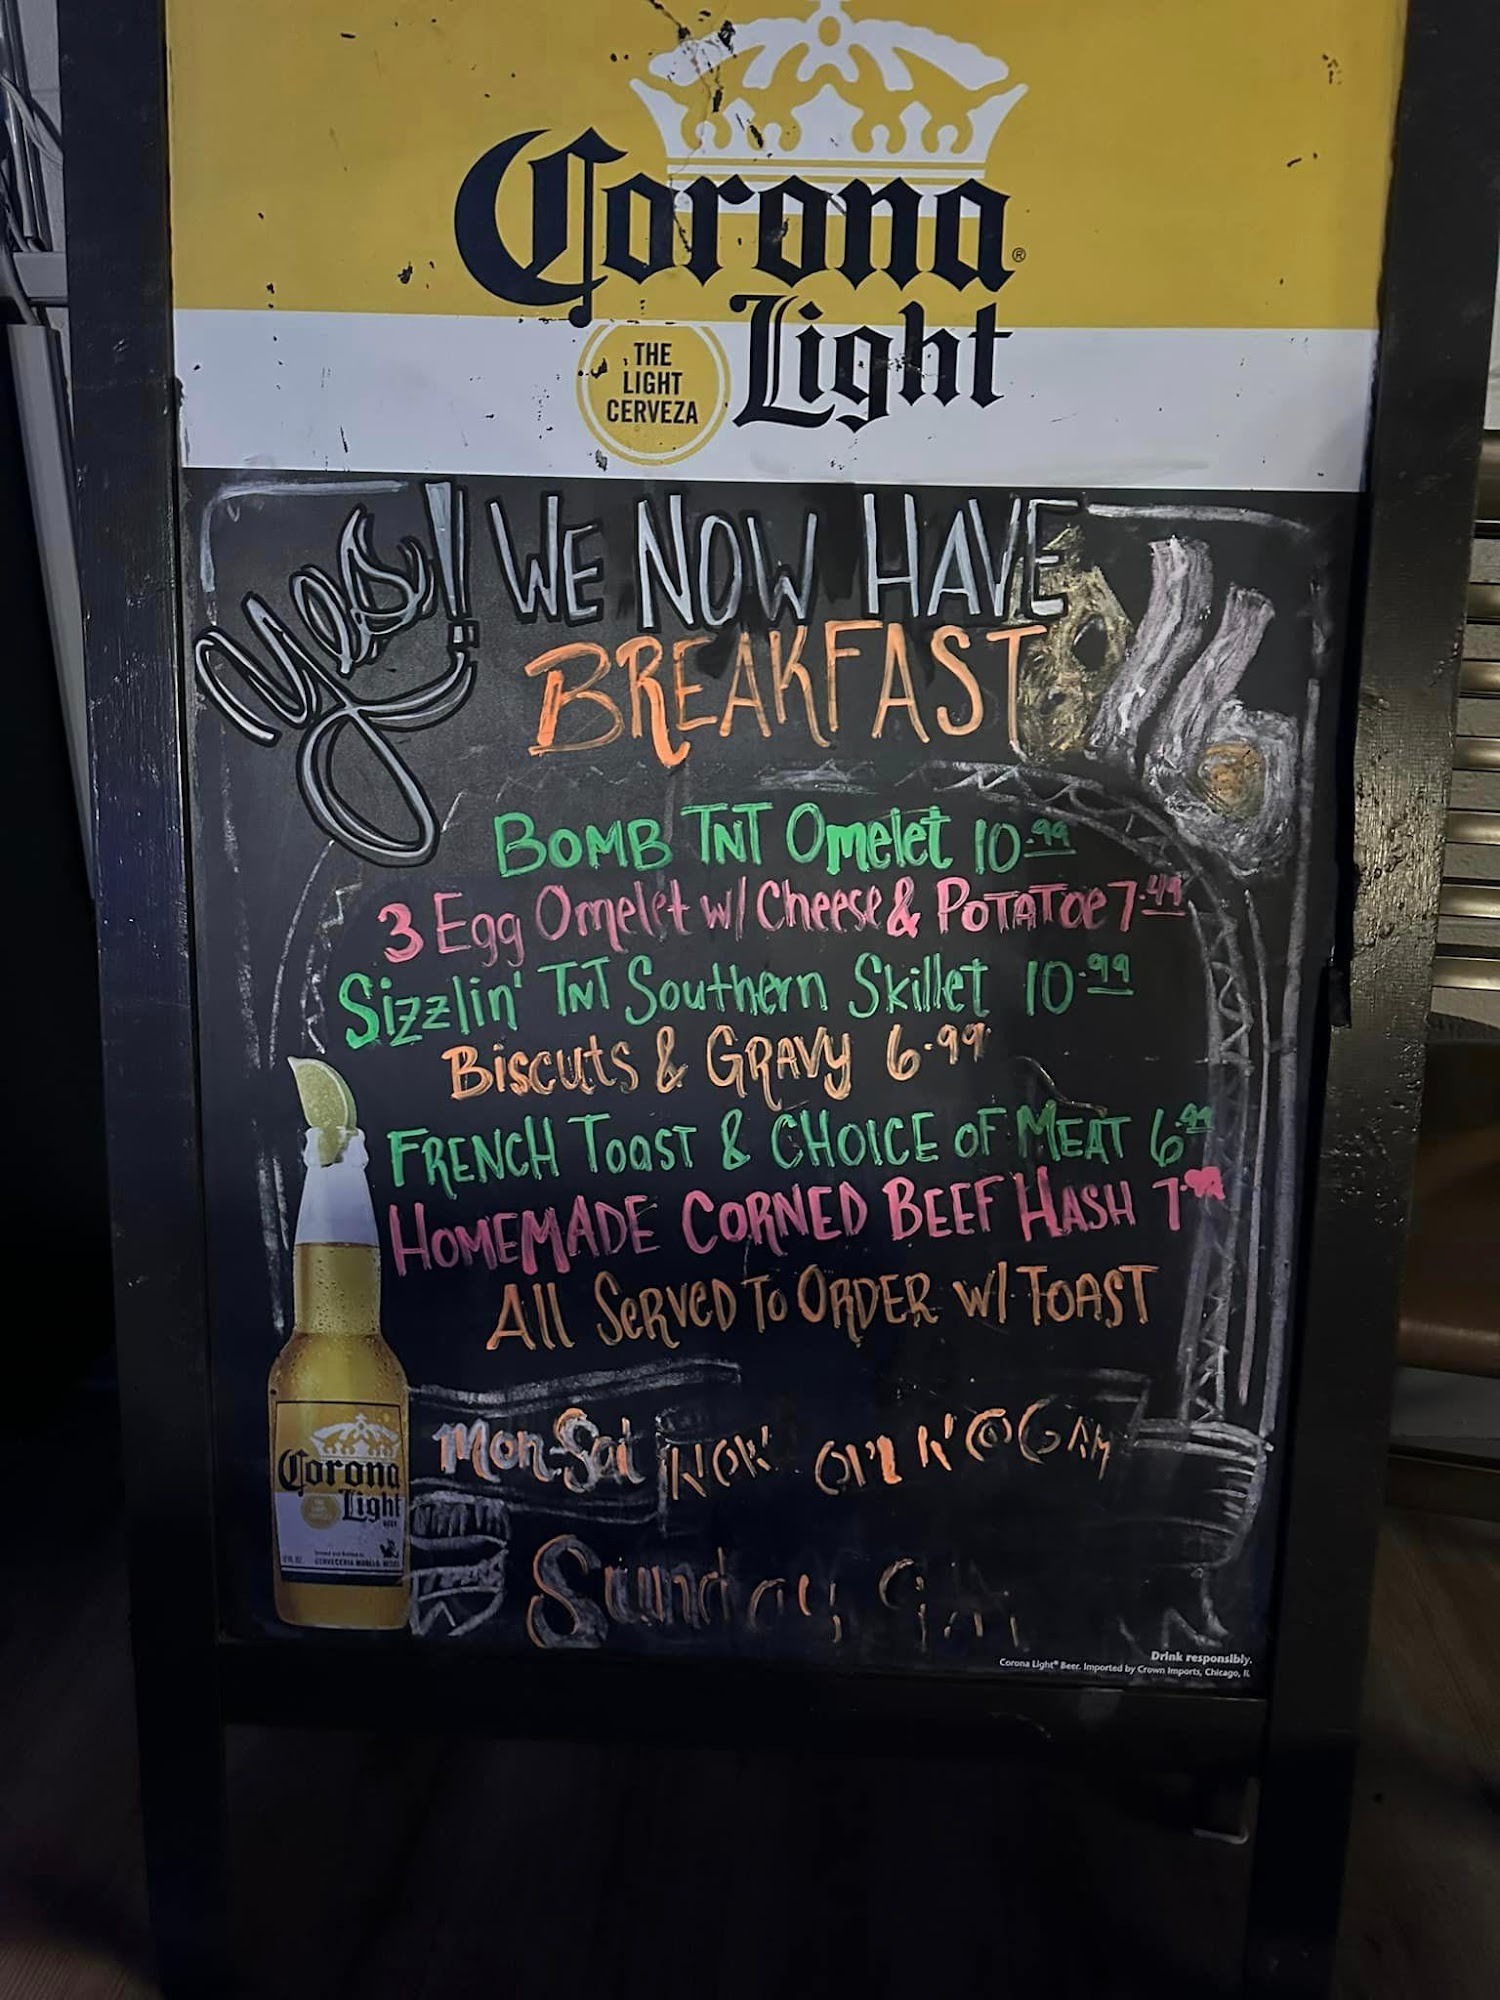 Corona®
Light
THE
LIGHT
CERVEZA
Yes!! WE NOW HAVE
BREAKFAST
BOMB TNT Omelet 10.99
3 Egg Omelet w/ Cheese & POTATOe 7.49
Sizzlin' TNT Southern Skillet 10.99
Biscuts & GRAVY 6.99
FRENCH ToasT & CHOICE OF MEAT 6.99
HOMEMADE CORNED BEEF HASH 7.
All SeRVeD To ORDER w/ TOAST
Mon-Sat NOW @ 6AM
Sunday 9
Corona
Light
BEER
Drink responsibly.
Corona Light® Beer. Imported by Crown Imports, Chicago, IL